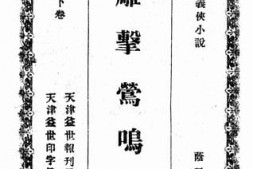 義俠小說
雕擊鶯鳴
下卷
天津益世報刊
天津益世印字